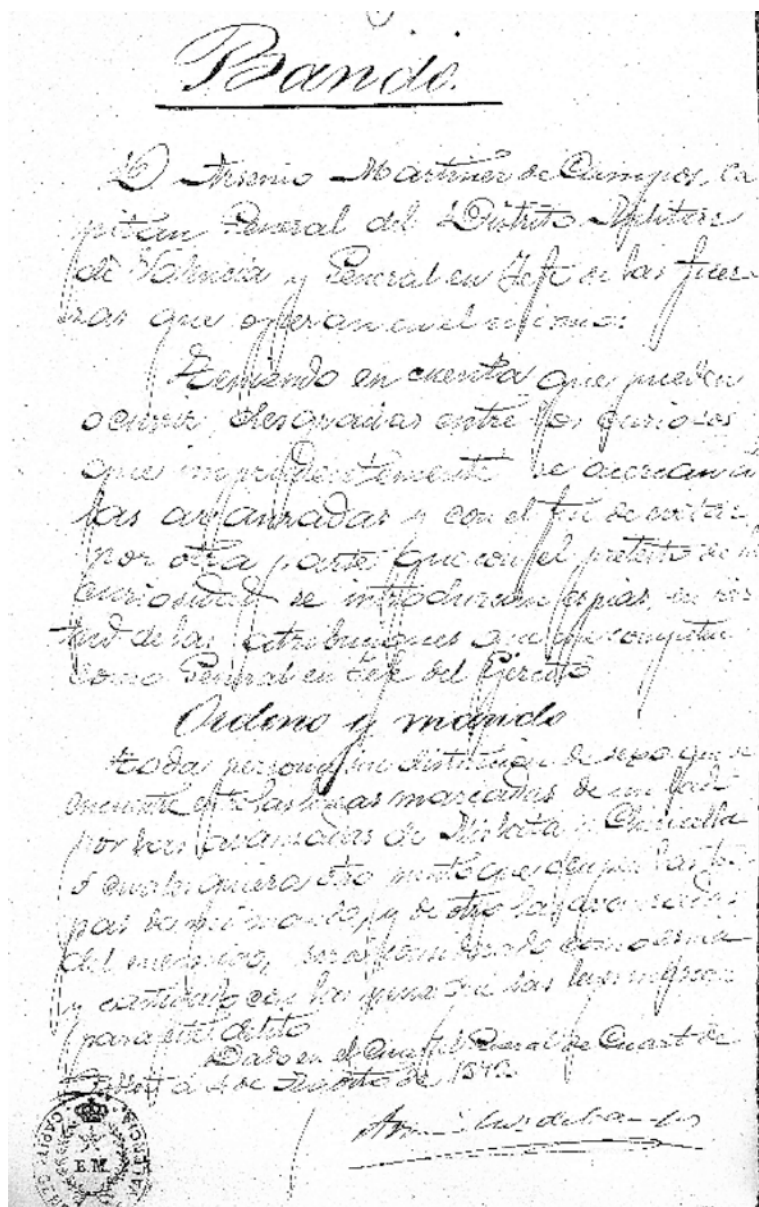 Bando.
D Arsenio Martinez de Campos, Ca
pitán General del Distrito Militar
de Valencia y General en Jefe de las fuer-
zas que operan en el mismo:
Teniendo en cuenta que pueden
ocurrir desgracias entre los curiosos
que imprudentemente se acercan á
las avanzadas y con el fin de evitar
por otra parte que con el pretesto de la
curiosidad se introduzcan espias, en vir
tud de las atribuciones que me competen
como General en Jefe del Ejercito
Ordeno y mando
Toda persona sin distinción de sexo que se
encuentre entre las lineas marcadas de un lado
por las avanzadas de Mislata y Chirivella
ó cualesquiera otro punto que ocupen las tro
pas de mi mando, y de otro las avanzadas
del enemigo, será considerado como
y castigado con las penas que las leyes
para este delito
Dado en el Cuartel General de Cuart de
Poblet á de Agosto de 1873.
CAPIT VALENCIA
E.M.